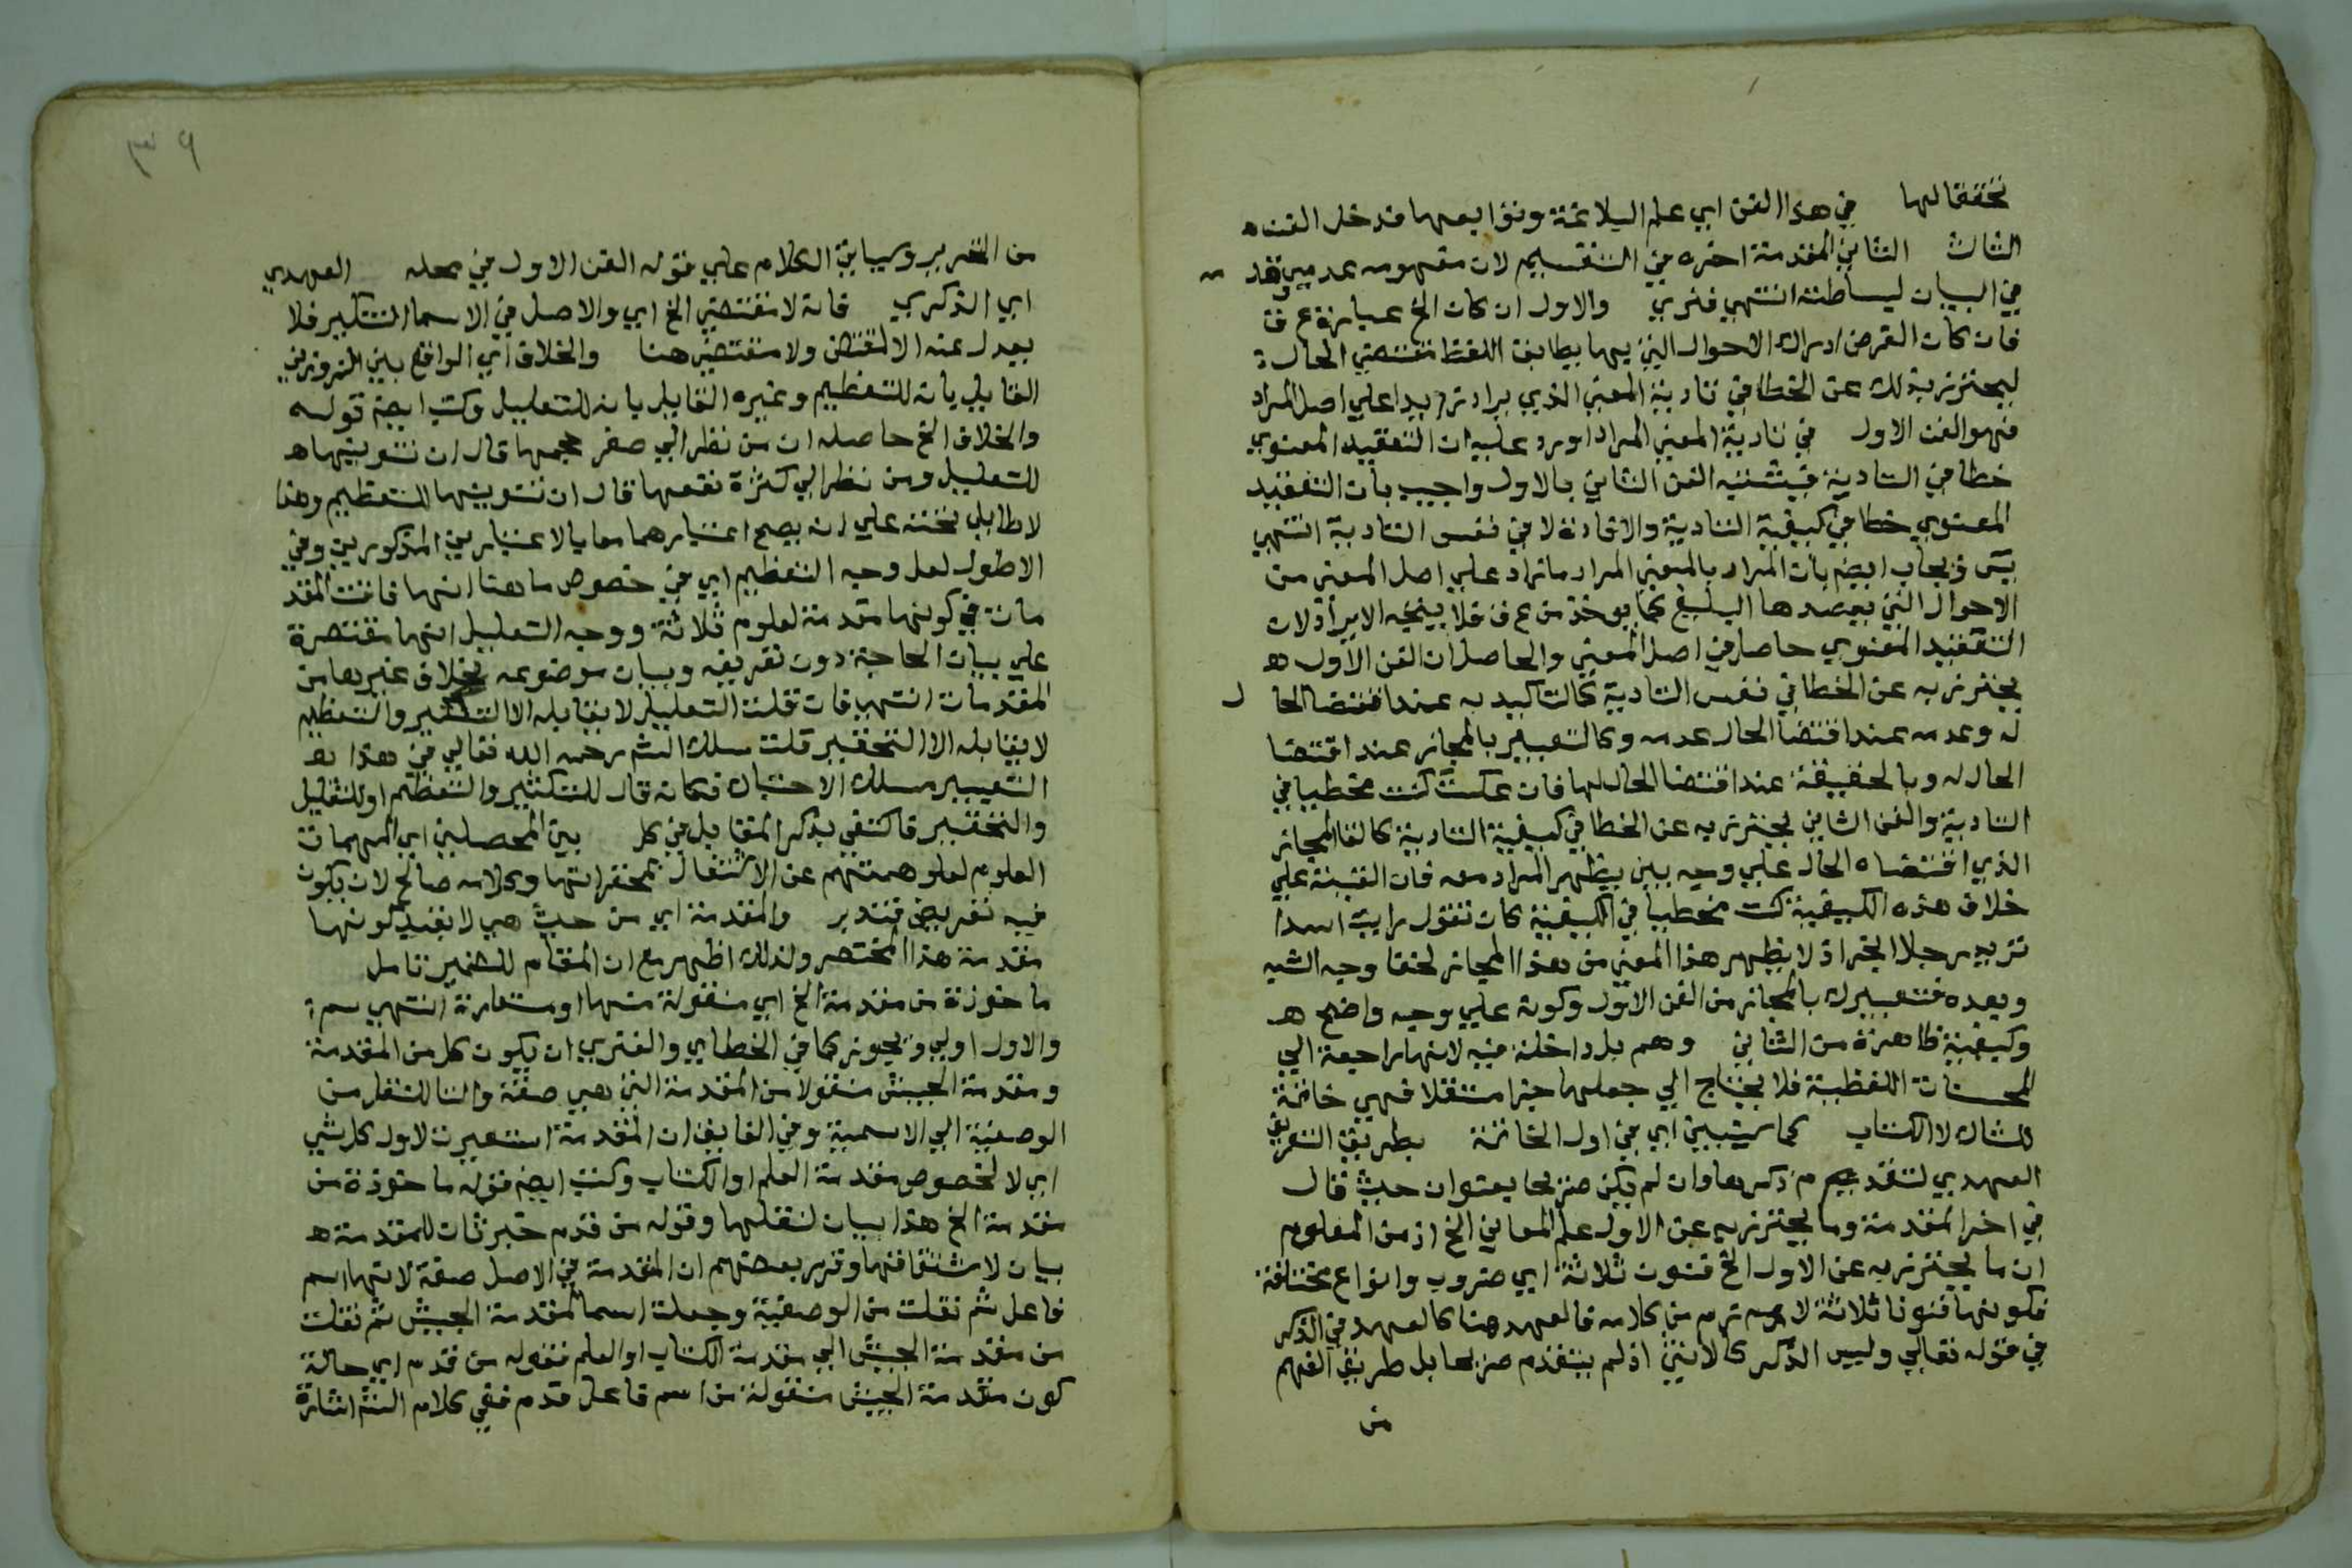 تحققا لها في هذا الفن اي علم البلاغة وتوابعها فدخل الفن
الثالث الثاني المقدمة اخره في التقسيم لان مفهومه عدمي فقد
في البيان لبساطته انتهي فنري والاول ان كان الخ عبارة ع ق
فان كان الغرض ادراك الاحوال التي بها يطابق اللفظ مقتضي الحال
ليحترز بذلك عن الخطا في تادية المعني الذي يراد زايدا علي اصل المراد
فهو الفن الاول في تادية المعني المراد اورد عليه ان التعقيد المعنوي
خطا في التادية فيشتبه الفن الثاني بالاول واجيب بان التعقيد
المعنوي خطا في كيفية التادية والافادة لا في نفس التادية انتهي
يس ويجاب ايضا بان المراد بالمعني المراد ما زاد علي اصل المعني من
الاحوال التي يقصدها البليغ كما يوخذ من ع ق فلا يتجه الايراد لان
التعقيد المعنوي حاصل في اصل المعني والحاصل ان الفن الاول
يحترز به عن الخطا في نفس التادية كالتاكيد به عند اقتضا الحال
له وعدمه عند اقتضا الحال عدمه وكالتعبير بالمجاز عند اقتضا
الحال له وبالحقيقة عند اقتضا الحال لها فان عكست كنت مخطيا في
التادية والفن الثاني يحترز به عن الخطا في كيفية التادية كالقا المجاز
الذي اقتضاه الحال علي وجه بين يظهر المراد معه فان القيته علي
خلاف هذه الكيفية كنت مخطيا في الكيفية كان تقول رايت اسدا
تريد رجلا ابخر اذ لا يظهر هذا المعني من هذا المجاز لخفا وجه الشبه
وبعده فتعبيرك بالمجاز من الفن الاول وكونه علي وجه واضح
وكيفية ظاهرة من الثاني وهم بل داخلة فيه لانها راجعة الي
المحسنات اللفظية فلا يحتاج الي جعلها جزا مستقلا فهي خاتمة
للثالث لا الكتاب كما سيتبين اي في اول الخاتمة بطريق التعريف
العهدي لتقدم ذكرها وان لم يكن صريحا بعنوان حيث قال
في اخر المقدمة وما يحترز به عن الاول علم المعاني الخ اذ من المعلوم
ان ما يحترز به عن الاول الخ فنون ثلاثة اي ضروب وانواع مختلفة
فكونها فنونا ثلاثة لازم من كلامه فالعهد هنا كالعهد في الذكر
في قوله تعالي وليس الذكر كالانثي اذ لم يتقدم صريحا بل طريق الفهم
من
٣٩
من التحرير وسياتي الكلام علي قوله الفن الاول في محله العهدي
اي الذكري فانه لا مقتضي الخ اي والاصل في الاسما التنكير فلا
يعدل عنه الا لمقتض ولا مقتضي هنا والخلاف اي الواقع بين الزوزني
القايل بانه للتعظيم وغيره القايل بانه للتقليل وكتب ايضا قوله
والخلاف الخ حاصله ان من نظر الي صغر حجمها قال ان تنوينها
للتقليل ومن نظر الي كثرة نفعها قال ان تنوينها للتعظيم وهذا
لا طايل تحته علي انه يصح اعتبارهما معا بالاعتبارين المذكورين وفي
الاطول لعل وجه التعظيم اي في خصوص ما هنا انها فاقت المقد
مات في كونها مقدمة لعلوم ثلاثة ووجه التقليل انها مقتصرة
علي بيان الحاجة دون تعريفه وبيان موضوعه بخلاف غيرها من
المقدمات انتهي فان قلت التقليل لا يقابله الا التكثير والتعظيم
لا يقابله الا التحقير قلت سلك الشم رحمه الله تعالي في هذا
التعبير مسلك الاحتباك فكانه قال للتكثير والتعظيم او للتقليل
والتحقير فاكتفي بذكر المقابل في كل بين المحصلين اي لمهمات
العلوم لعلو همتهم عن الاشتغال بمحقراتها وكلامه صالح لان يكون
فيه تعريض فتدبر والمقدمة اي من حيث هي لا بقيد كونها
مقدمة هذا المختصر ولذلك اظهر مع ان المقام للضمير تامل
ماخوذة من مقدمة الخ اي منقولة منها او مستعارة انتهي سم
والاول اولي ويجوز كما في الخطاي والفنري ان يكون كل من المقدمة
ومقدمة الجيش منقولا من المقدمة التي هي صفة والتا للنقل من
الوصفية الي الاسمية وفي الفايق ان المقدمة استعيرت لاول كل شي
اي لا لخصوص مقدمة العلم او الكتاب وكتب ايضا قوله ماخوذة من
مقدمة الخ هذا بيان لنقلها وقوله من قدم خبر ثان للمقدمة
بيان لاشتقاقها وقرر بعضهم ان المقدمة في الاصل صفة لانها اسم
فاعل ثم نقلت من الوصفية وجعلت اسما لمقدمة الجيش ثم نقلت
من مقدمة الجيش الي مقدمة الكتاب او العلم فقوله من قدم اي حالة
كون مقدمة الجيش منقولة من اسم فاعل قدم ففي كلام الشم اشارة